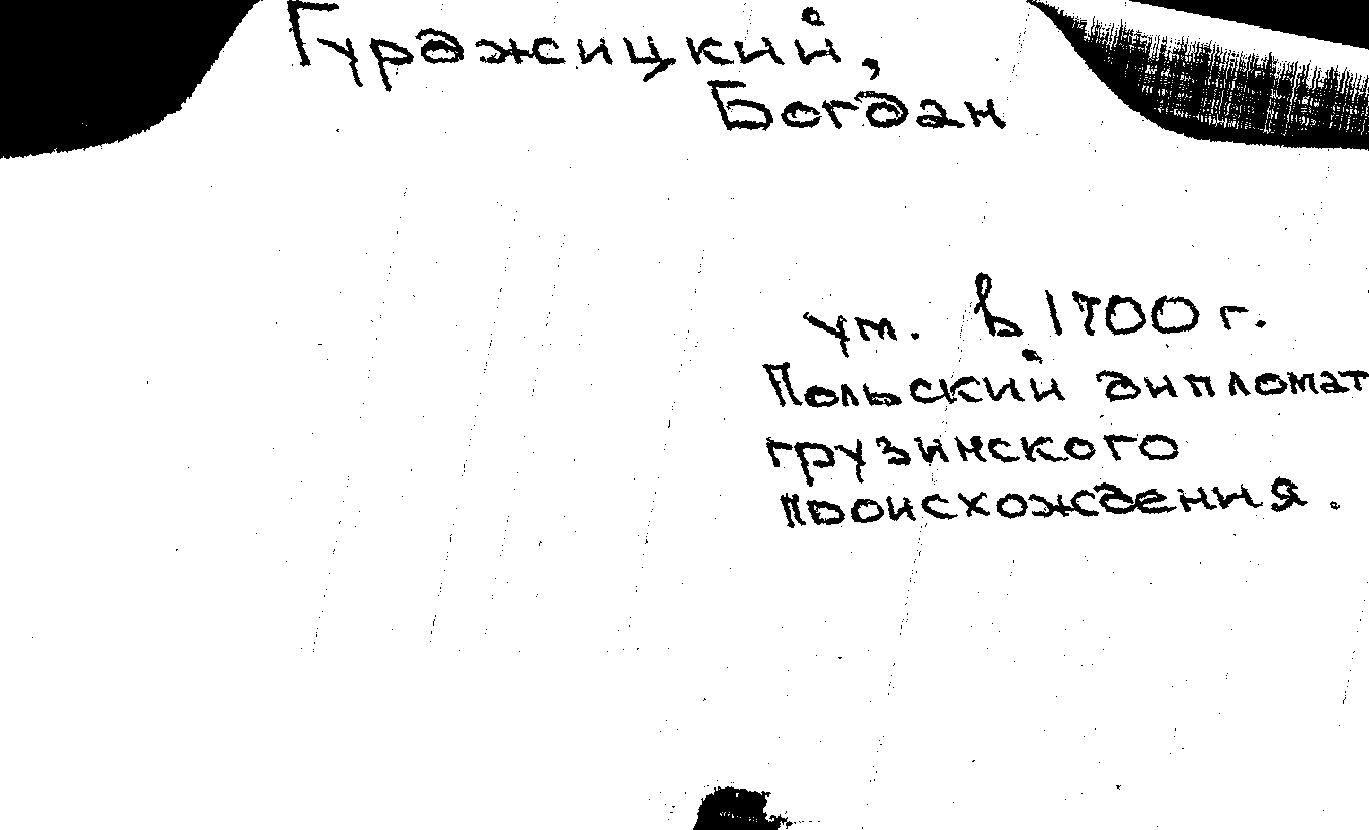 Гурджицкий,
Богдан
ум. в 1700 г.
Польский дипломат
грузинского
происхождения.